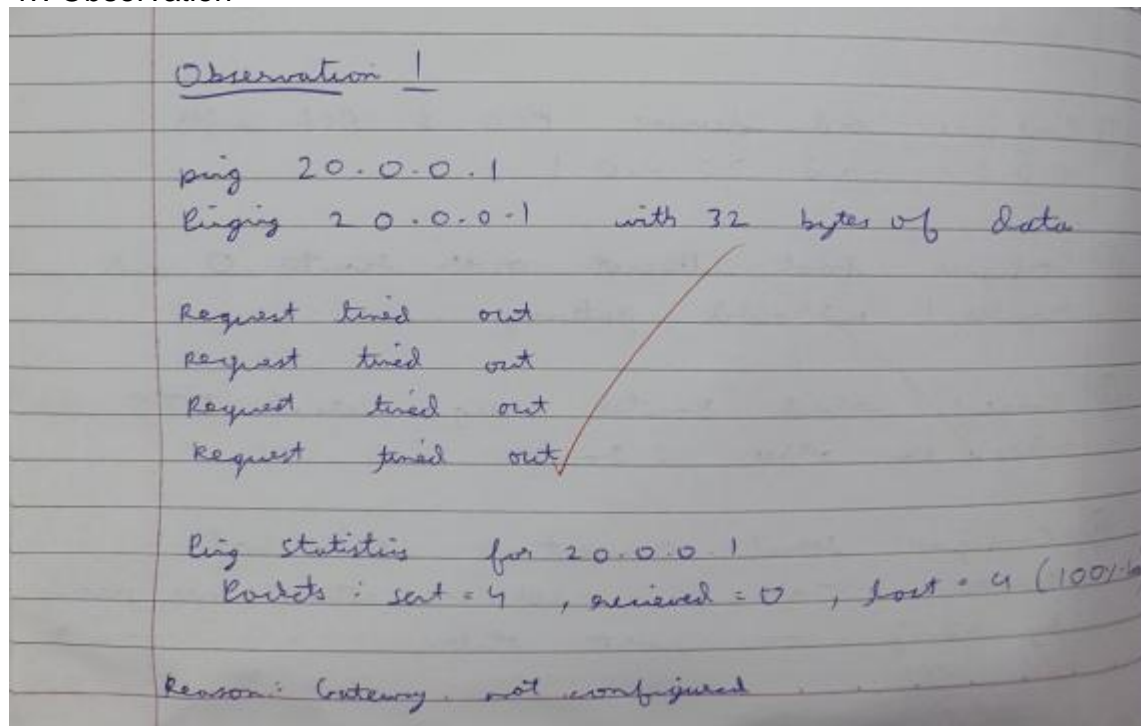 Observation 1
ping 20.0.0.1
Pinging 20.0.0.1 with 32 bytes of data
Request timed out
Request timed out
Request timed out
Request timed out
Ping statistics for 20.0.0.1
Packets : sent = 4 , recieved = 0 , lost = 4 (100%
Reason : Gateway not configured